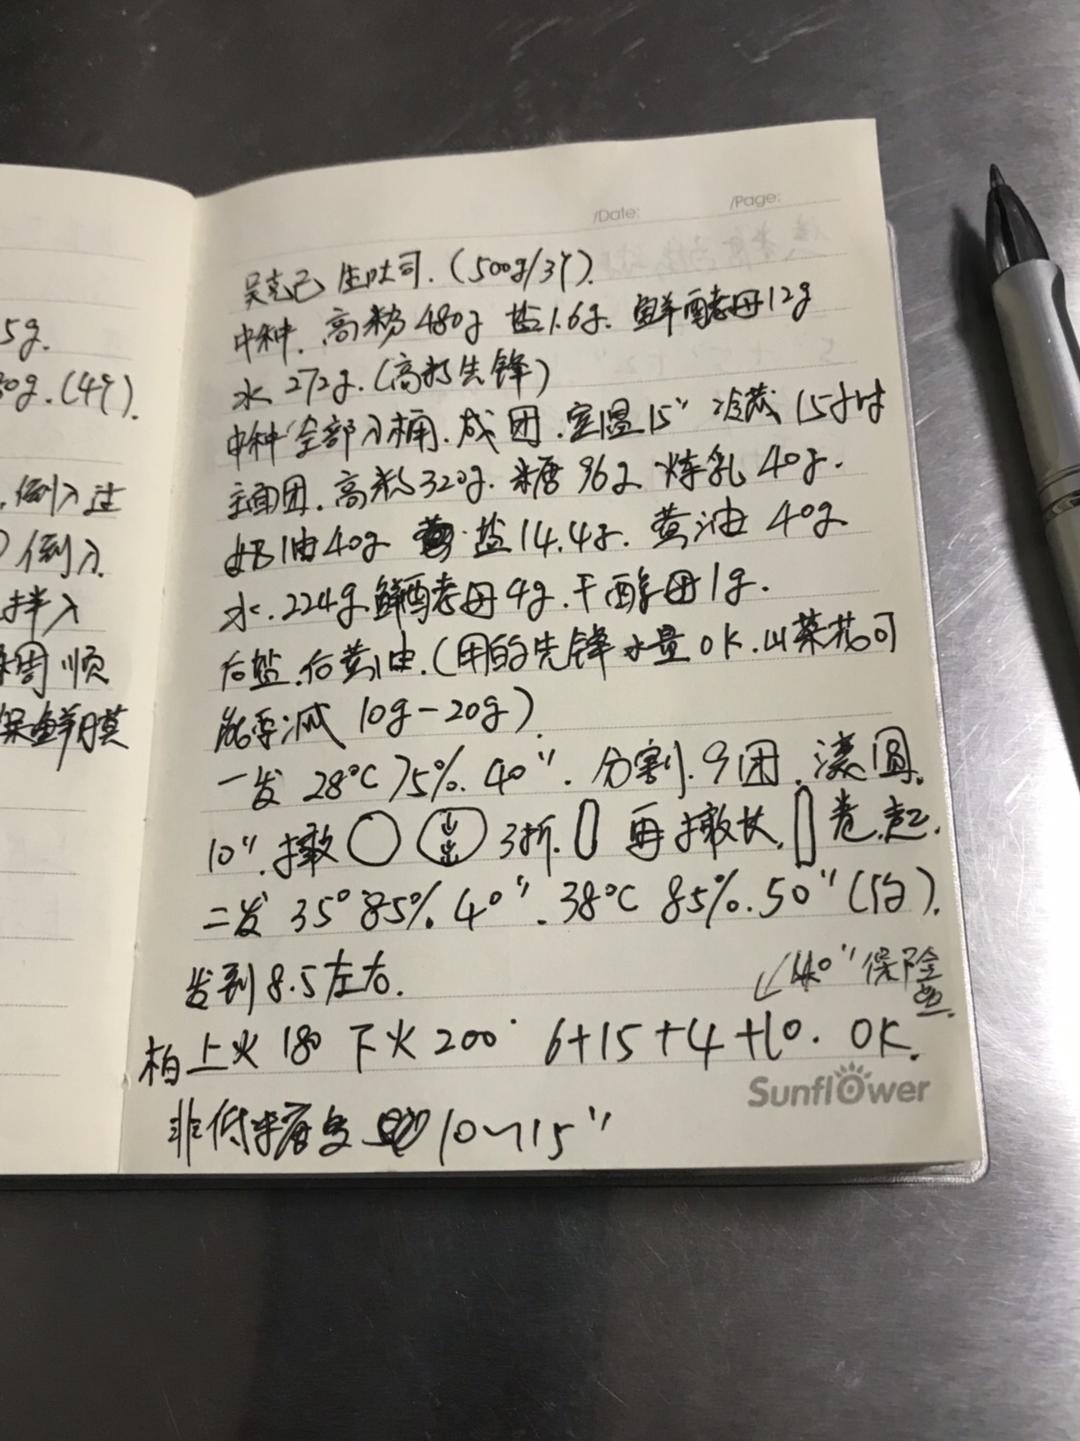 5g.
30g.(4个).
倒入过
倒入
拌入
周 顺
保鲜膜
/Date: /Page:
吴克己 生吐司.(500g/3个).
中种. 高粉480g 盐1.6g. 鲜酵母12g
水 272g.(高打先锋)
中种 全部入桶.成团.室温15" 冷藏 15小时
主面团.高粉320g. 糖96g 炼乳 40g.
奶油40g 盐14.4g. 黄油 40g
水.224g 鲜酵母4g.干酵母1g.
后盐.后黄油.(用的先锋水量OK.山茶花可
能要减 10g-20g)
一发 28°C 75%. 40". 分割.9团.滚圆.
10".擀 3折. 再擀长. 卷起.
二发 35° 85%. 40". 38°C 85%.50"(约).
发到8.5左右.
40"保险些.
柏上火180 下火200° 6+15+4+10. OK.
10~15"
Sunflower